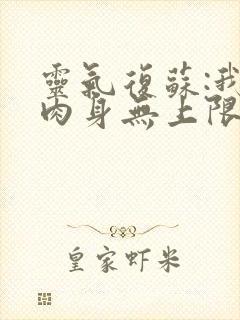 靈氣復蘇:我
肉身無上限
皇家虾米